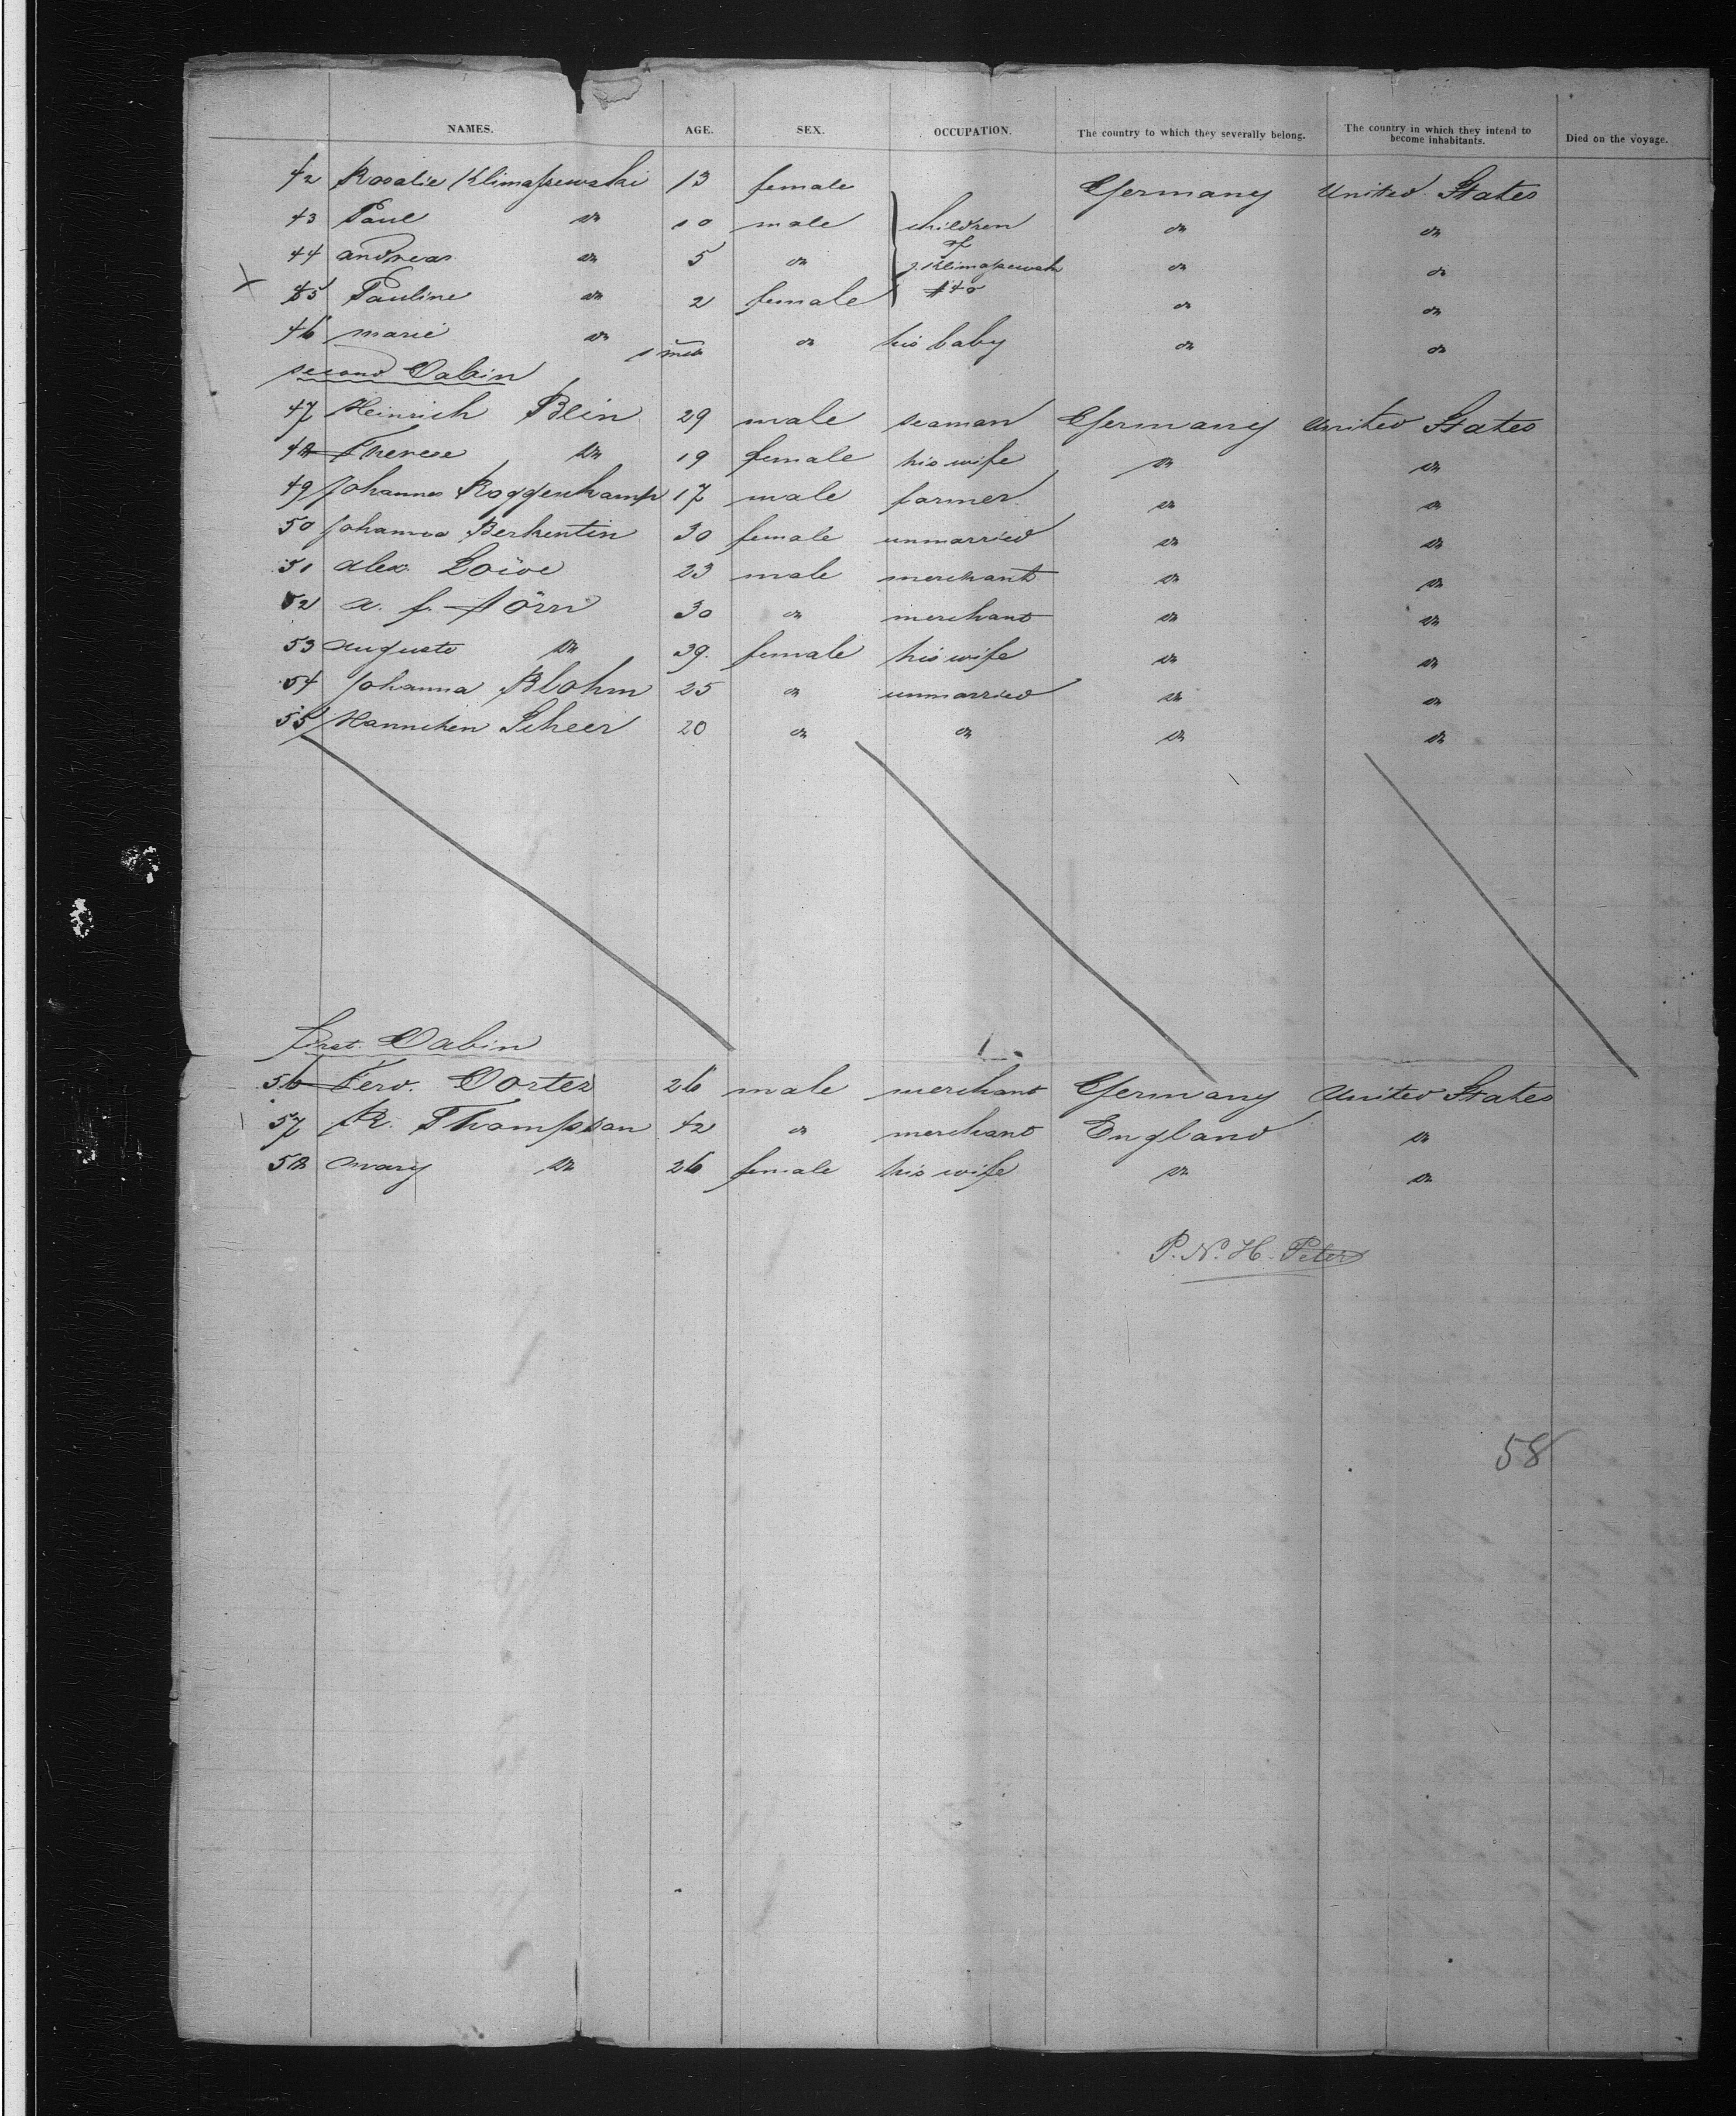 NAMES. AGE. SEX. OCCUPATION. The country to which they severally belong. The country in which they intend to become inhabitants. Died on the voyage.
42 Rosalie Klimaßewski 13 female Germany United States
43 Paul do 10 male children do do
of
44 andreas do 5 do J. Klimaßewski do do
X 45 Pauline do 2 female #40 do do
46 marie do do his baby do do
second Cabin
47 Heinrich Blin 29 male seaman Germany United States
48 Therese do 19 female his wife do do
49 Johannes Roggenkamp 17 male farmer do do
50 Johanna Berkentin 30 female unmarried do do
51 alex. Loïve 23 male merchant do do
52 a. f. Jörn 30 do merchant do do
53 auguste do 39. female his wife do do
54 Johanna Blohm 25 do unmarried do do
55 Hannchen Scheer 20 do do do do
first. Cabin
56 Ferd. Cortez 26 male merchant Germany United States
57 R. Thompson 42 do merchant England do
58 mary do 26 female his wife do do
P. N. H. Peter
58